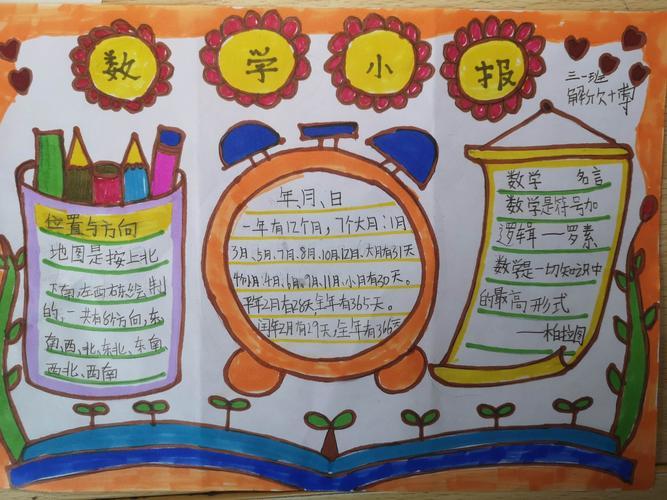 数学小报
三一班
位置与方向
地图是按上北
下南左西右东绘制
的,一共有8个方向,东
南、西、北、东北、东南
西北、西南
年、月、日
一年有12个月,7个大月:1月
3月、5月、7月、8月、10月、12月、大月有31天
4个小月:4月、6月、9月、11月、小月有30天。
平年2月有28天,全年有365天。
闰年2月有29天,全年有366天
数学 名言
数学是符号加
逻辑—罗素
数学是一切知识中
的最高形式
—柏拉图